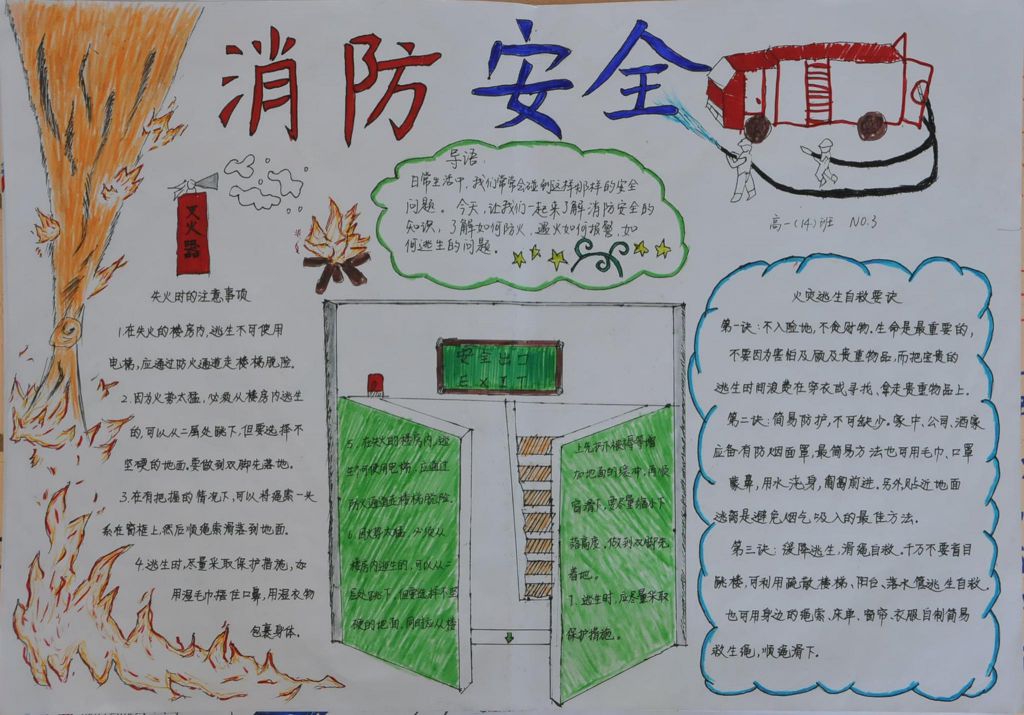 消防安全
导语：
日常生活中，我们常常会碰到这样那样的安全
问题。今天，让我们一起来了解消防安全的
知识，了解如何防火，遇火如何报警，如
何逃生的问题。
高一(14)班 NO.3
灭火器
失火时的注意事项
1.在失火的楼房内，逃生不可使用
电梯，应通过防火通道走楼梯脱险。
2.因为火势太猛，必须从楼房内逃生
的，可以从二层处跳下，但要选择不
坚硬的地面，要做到双脚先落地。
3.在有把握的情况下，可以将绳索一头
系在窗框上，然后顺绳索滑落到地面。
4.逃生时，尽量采取保护措施，如
用湿毛巾捂住口鼻，用湿衣物
包裹身体。
安全出口
EXIT
5.在失火的楼房内，逃
生不可使用电梯，应通过
防火通道走楼梯脱险。
6.因火势太猛，必须从
楼房内逃生的，可以从二
层处跳下，但要选择不坚
硬的地面，同时应从楼
上先扔下被褥等增
加地面的缓冲，再顺
窗滑下，要尽量缩小下
落高度，做到双脚先
着地。
7.逃生时，应尽量采取
保护措施。
火灾逃生自救要诀
第一诀：不入险地，不贪财物。生命是最重要的，
不要因为害怕及顾及贵重物品，而把宝贵的
逃生时间浪费在穿衣或寻找、拿走贵重物品上。
第二诀：简易防护，不可缺少。家中、公司、酒家
应备有防烟面罩，最简易方法也可用毛巾、口罩
蒙鼻，用水浇身，匍匐前进。另外贴近地面
逃离是避免烟气吸入的最佳方法。
第三诀：缓降逃生，滑绳自救。千万不要盲目
跳楼，可利用疏散楼梯、阳台、落水管逃生自救。
也可用身边的绳索、床单、窗帘、衣服自制简易
救生绳，顺绳滑下。